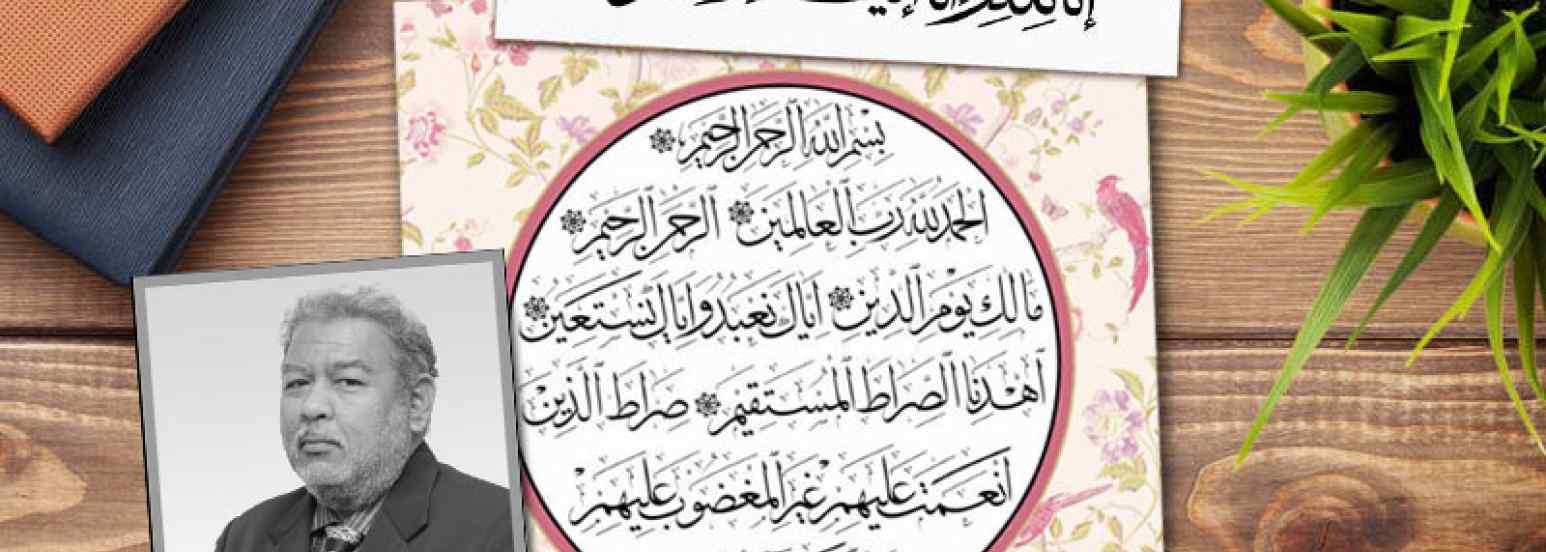 إنا لله وإنا إليه
بِسْمِ اللهِ الرَّحْمٰنِ الرَّحِيمِ
الحَمْدُ لِلّٰهِ رَبِّ الْعَالَمِينَ الرَّحْمٰنِ الرَّحِيمِ
مَالِكِ يَوْمِ الدِّينِ اِيَّاكَ نَعْبُدُ وَاِيَّاكَ نَسْتَعِينُ
اهْدِنَا الصِّرَاطَ الْمُسْتَقِيمَ صِرَاطَ الَّذِينَ
اَنْعَمْتَ عَلَيْهِمْ غَيْرِ الْمَغْضُوبِ عَلَيْهِمْ